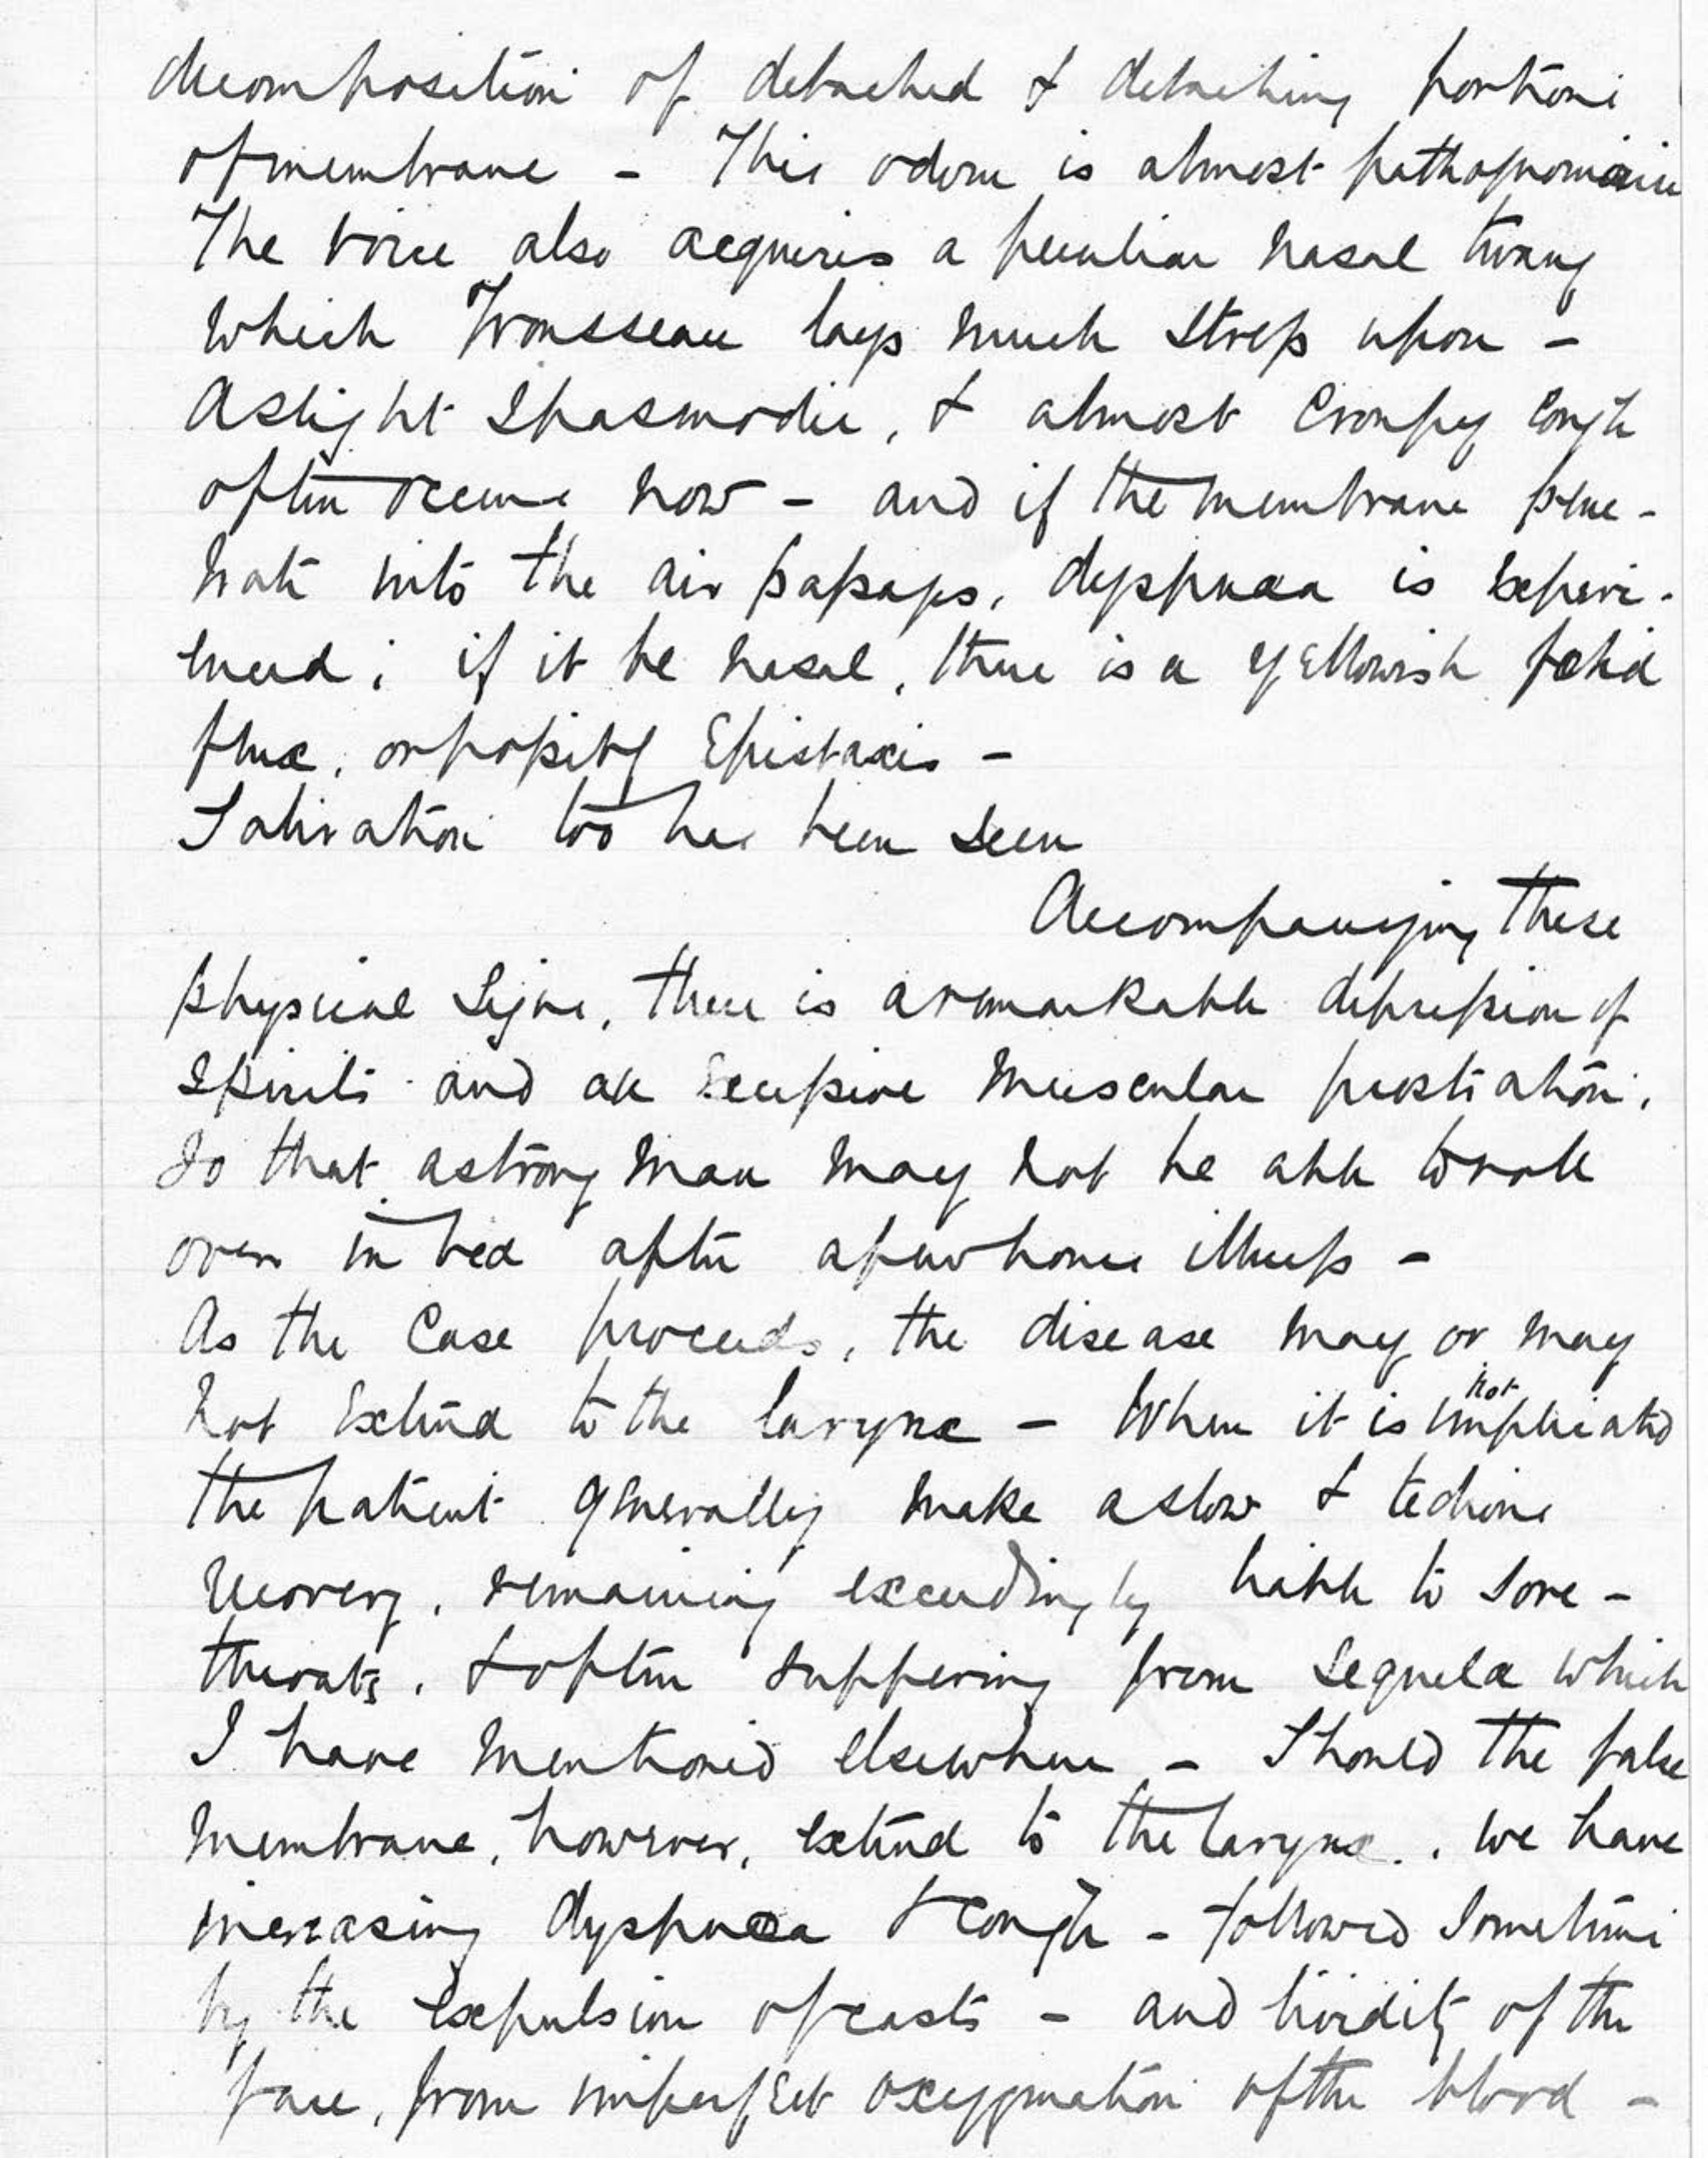 decomposition of detached & detaching portions
of membrane - This odour is almost pathognomonic
The voice also acquires a peculiar nasal twang
which Trousseau lays much stress upon -
A slight spasmodic, & almost Croupy cough
often occurs now - and if the membrane pene-
trate into the air passages, dyspnoea is experi-
enced; if it be nasal, there is a yellowish foetid
flux, or possibly Epistaxis -
Salivation too has been seen
Accompanying these
physical signs, there is a remarkable depression of
spirits and an Excessive muscular prostration,
so that a strong man may not be able to roll
over in bed after a few hours illness -
As the Case proceeds, the disease may or may
not Extend to the larynx - When it is not implicated
the patient generally make a slow & tedious
recovery, remaining exceedingly liable to sore-
throats, & often suffering from sequelae which
I have mentioned elsewhere - Should the false
membrane, however, extend to the larynx, we have
increasing dyspnoea & cough - followed sometimes
by the expulsion of casts - and lividity of the
face, from imperfect oxygenation of the blood -